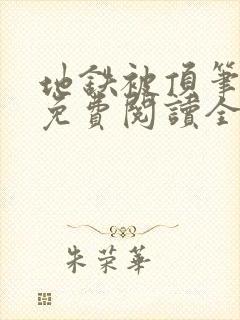 地鉄被頂筆
免費閱讀全
朱荣華